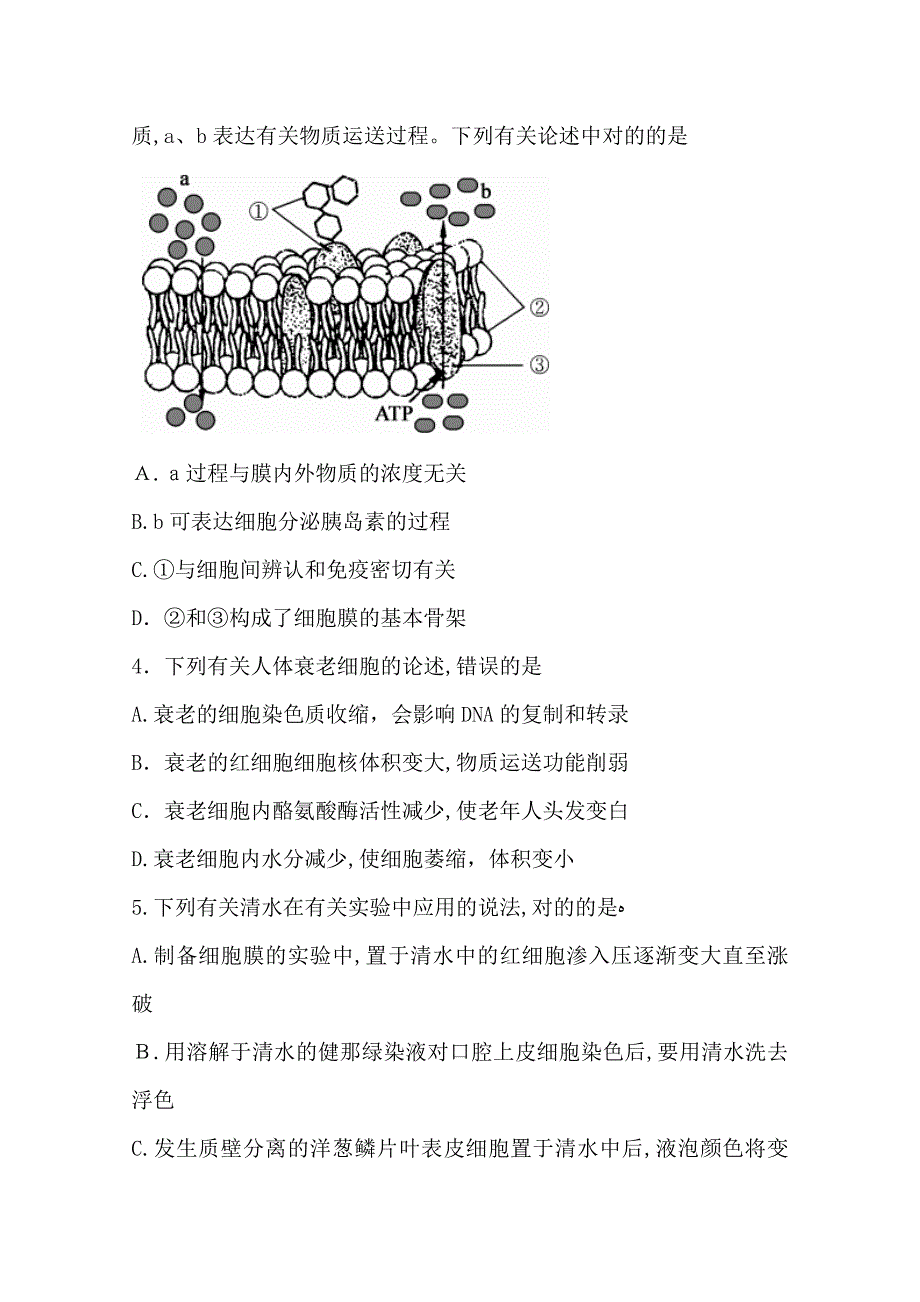 质,a、b 表达有关物质运送过程。下列有关论述中对的的是
a
①
b
②
③
ATP
A. a 过程与膜内外物质的浓度无关
B.b 可表达细胞分泌胰岛素的过程
C.①与细胞间辨认和免疫密切有关
D. ②和③构成了细胞膜的基本骨架
4. 下列有关人体衰老细胞的论述,错误的是
A.衰老的细胞染色质收缩，会影响 DNA 的复制和转录
B. 衰老的红细胞细胞核体积变大,物质运送功能削弱
C. 衰老细胞内酪氨酸酶活性减少,使老年人头发变白
D.衰老细胞内水分减少,使细胞萎缩，体积变小
5.下列有关清水在有关实验中应用的说法,对的的是
A.制备细胞膜的实验中,置于清水中的红细胞渗入压逐渐变大直至涨
破
B.用溶解于清水的健那绿染液对口腔上皮细胞染色后,要用清水洗去
浮色
C.发生质壁分离的洋葱鳞片叶表皮细胞置于清水中后,液泡颜色将变